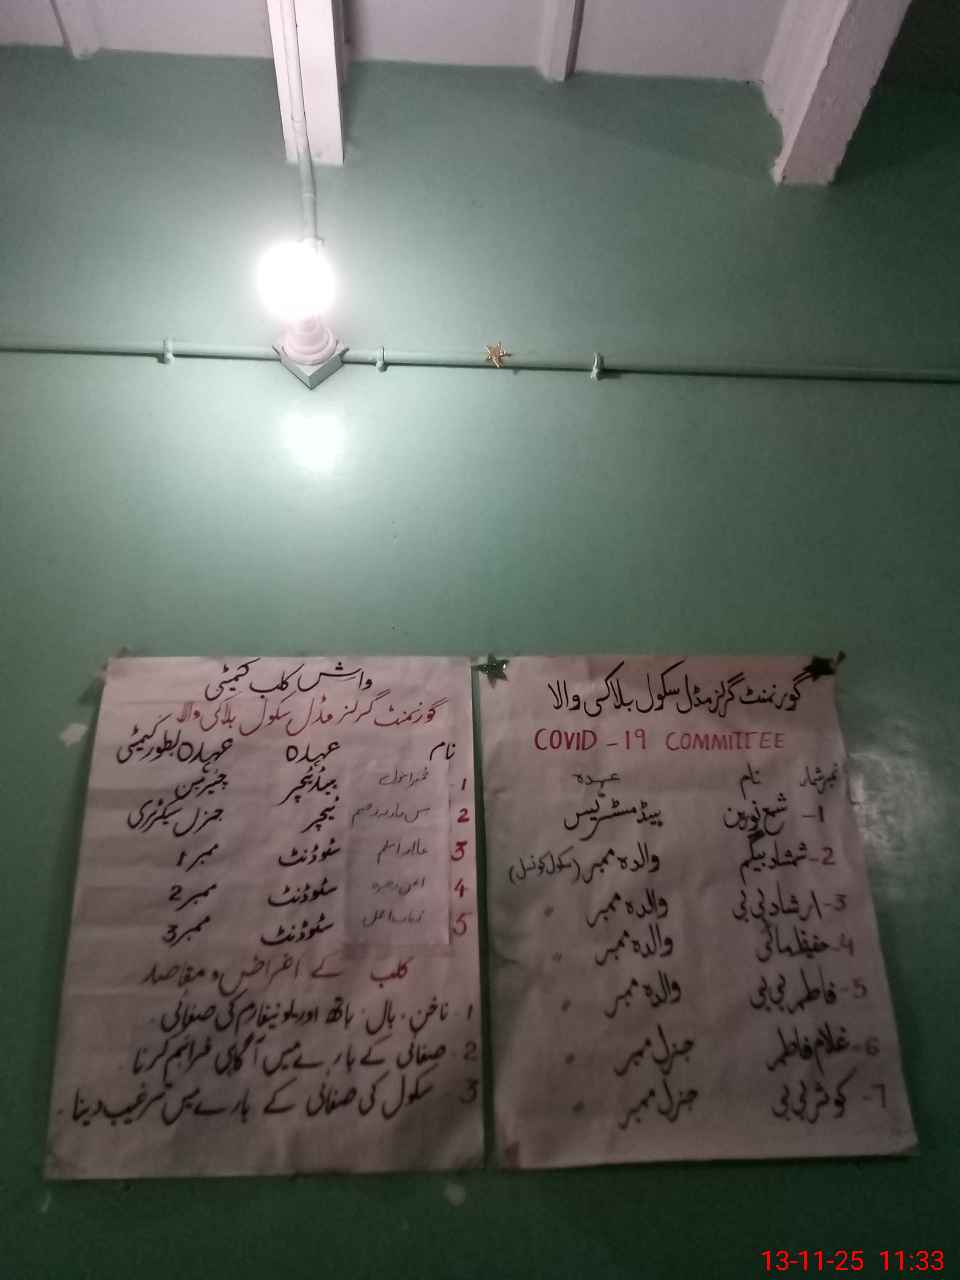 گورنمنٹ گرلز مڈل سکول بلاکی والا
COVID-19 COMMITTEE
نمبر شمار نام عہدہ
1- شمع نورین ہیڈ مسٹریس
2- شمشاد بیگم والدہ ممبر (سکول کونسل)
3- ارشاد بی بی والدہ ممبر "
4- حفیظ مائی والدہ ممبر "
5- فاطمہ بی بی والدہ ممبر "
6- غلام فاطمہ جنرل ممبر "
7- کوثر بی بی جنرل ممبر "
واش کلب کمیٹی
گورنمنٹ گرلز مڈل سکول بلاکی والا
نام عہدہ عہدہ بطور کمیٹی
1 ہیڈ ٹیچر چیئرپرسن
2 ٹیچر جنرل سیکرٹری
3 سٹوڈنٹ ممبر 1
4 سٹوڈنٹ ممبر 2
5 سٹوڈنٹ ممبر 3
کلب کے اغراض و مقاصد
1. ناخن، بال، ہاتھ اور یونیفارم کی صفائی۔
2. صفائی کے بارے میں آگاہی فراہم کرنا۔
3. سکول کی صفائی کے بارے میں ترغیب دینا۔
13-11-25 11:33